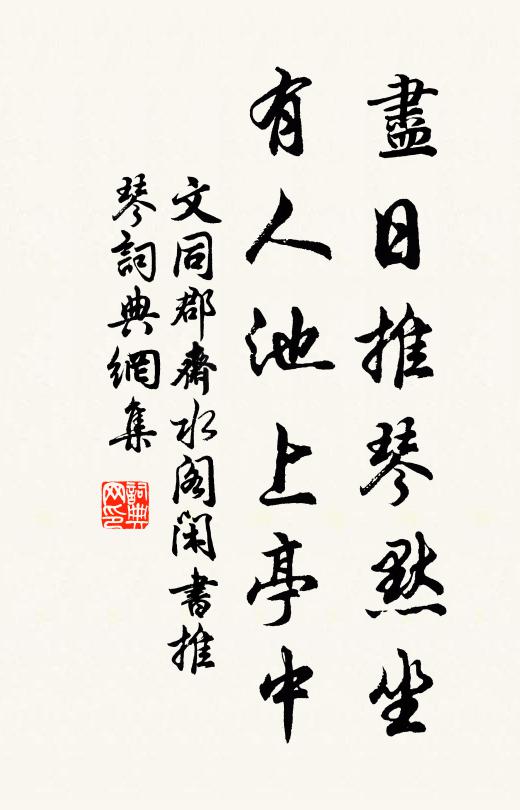 盡日推琴黙坐
有人池上亭中
文同郡齋水閣閑書推
琴詞典網集
詞典
网印